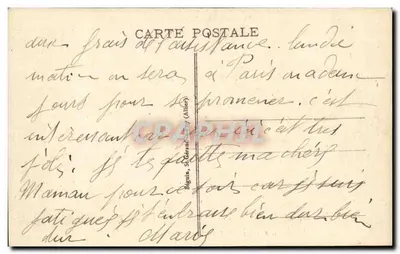 CARTE POSTALE
aux frais de l'assistance. lundi
matin on sera à Paris on a deux
jours pour se promener. c'est
intéressant c'est très
joli. Je te quitte ma chère
Maman pour ce soir car je suis
fatiguée je t'embrasse bien dur bien
dur. Marie